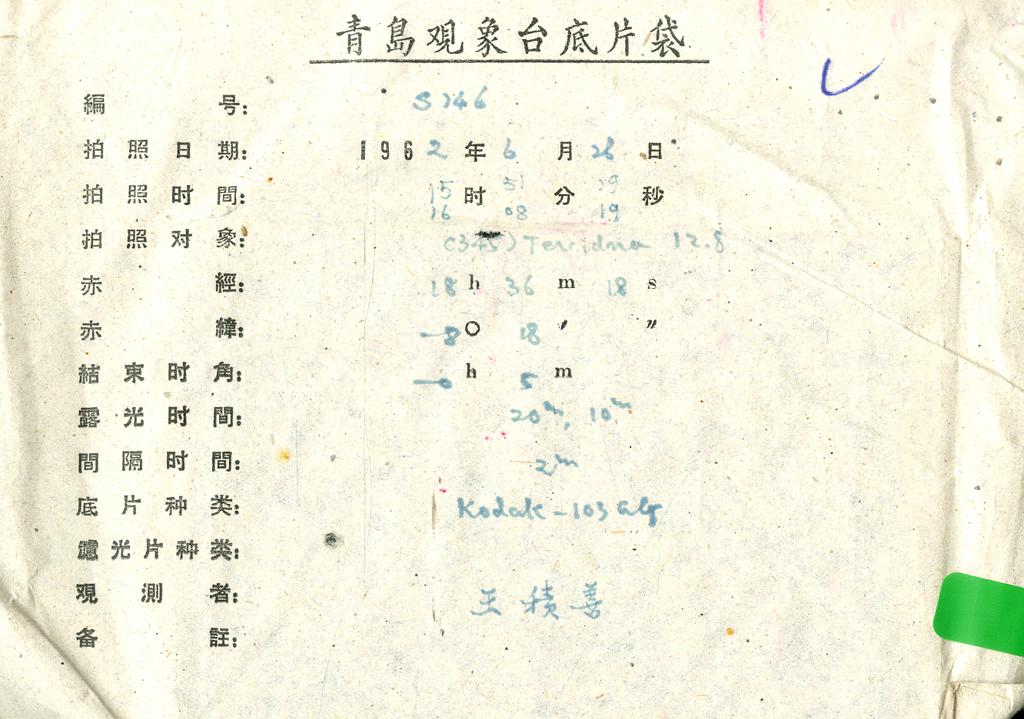 青島观象台底片袋
編 号: S746
拍照日期: 1962年6月26日
拍照时間: 15时51分19秒
16 08 19
拍照对象: (345) Tercidina 12.8
赤 經: 18h 36m 18s
赤 緯: -8° 18′ ″
結束时角: -0h 5m
露光时間: 20m, 10m
間隔时間: 2m
底片种类: Kodak-103
濾光片种类:
观測者: 王積善
备 註: